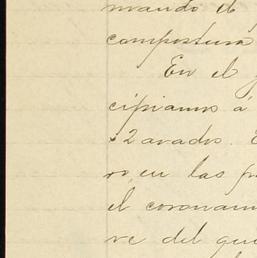 mando el
compostura
En el
cipiamos á
2 arados.
ro, en las
el coronam
re del que